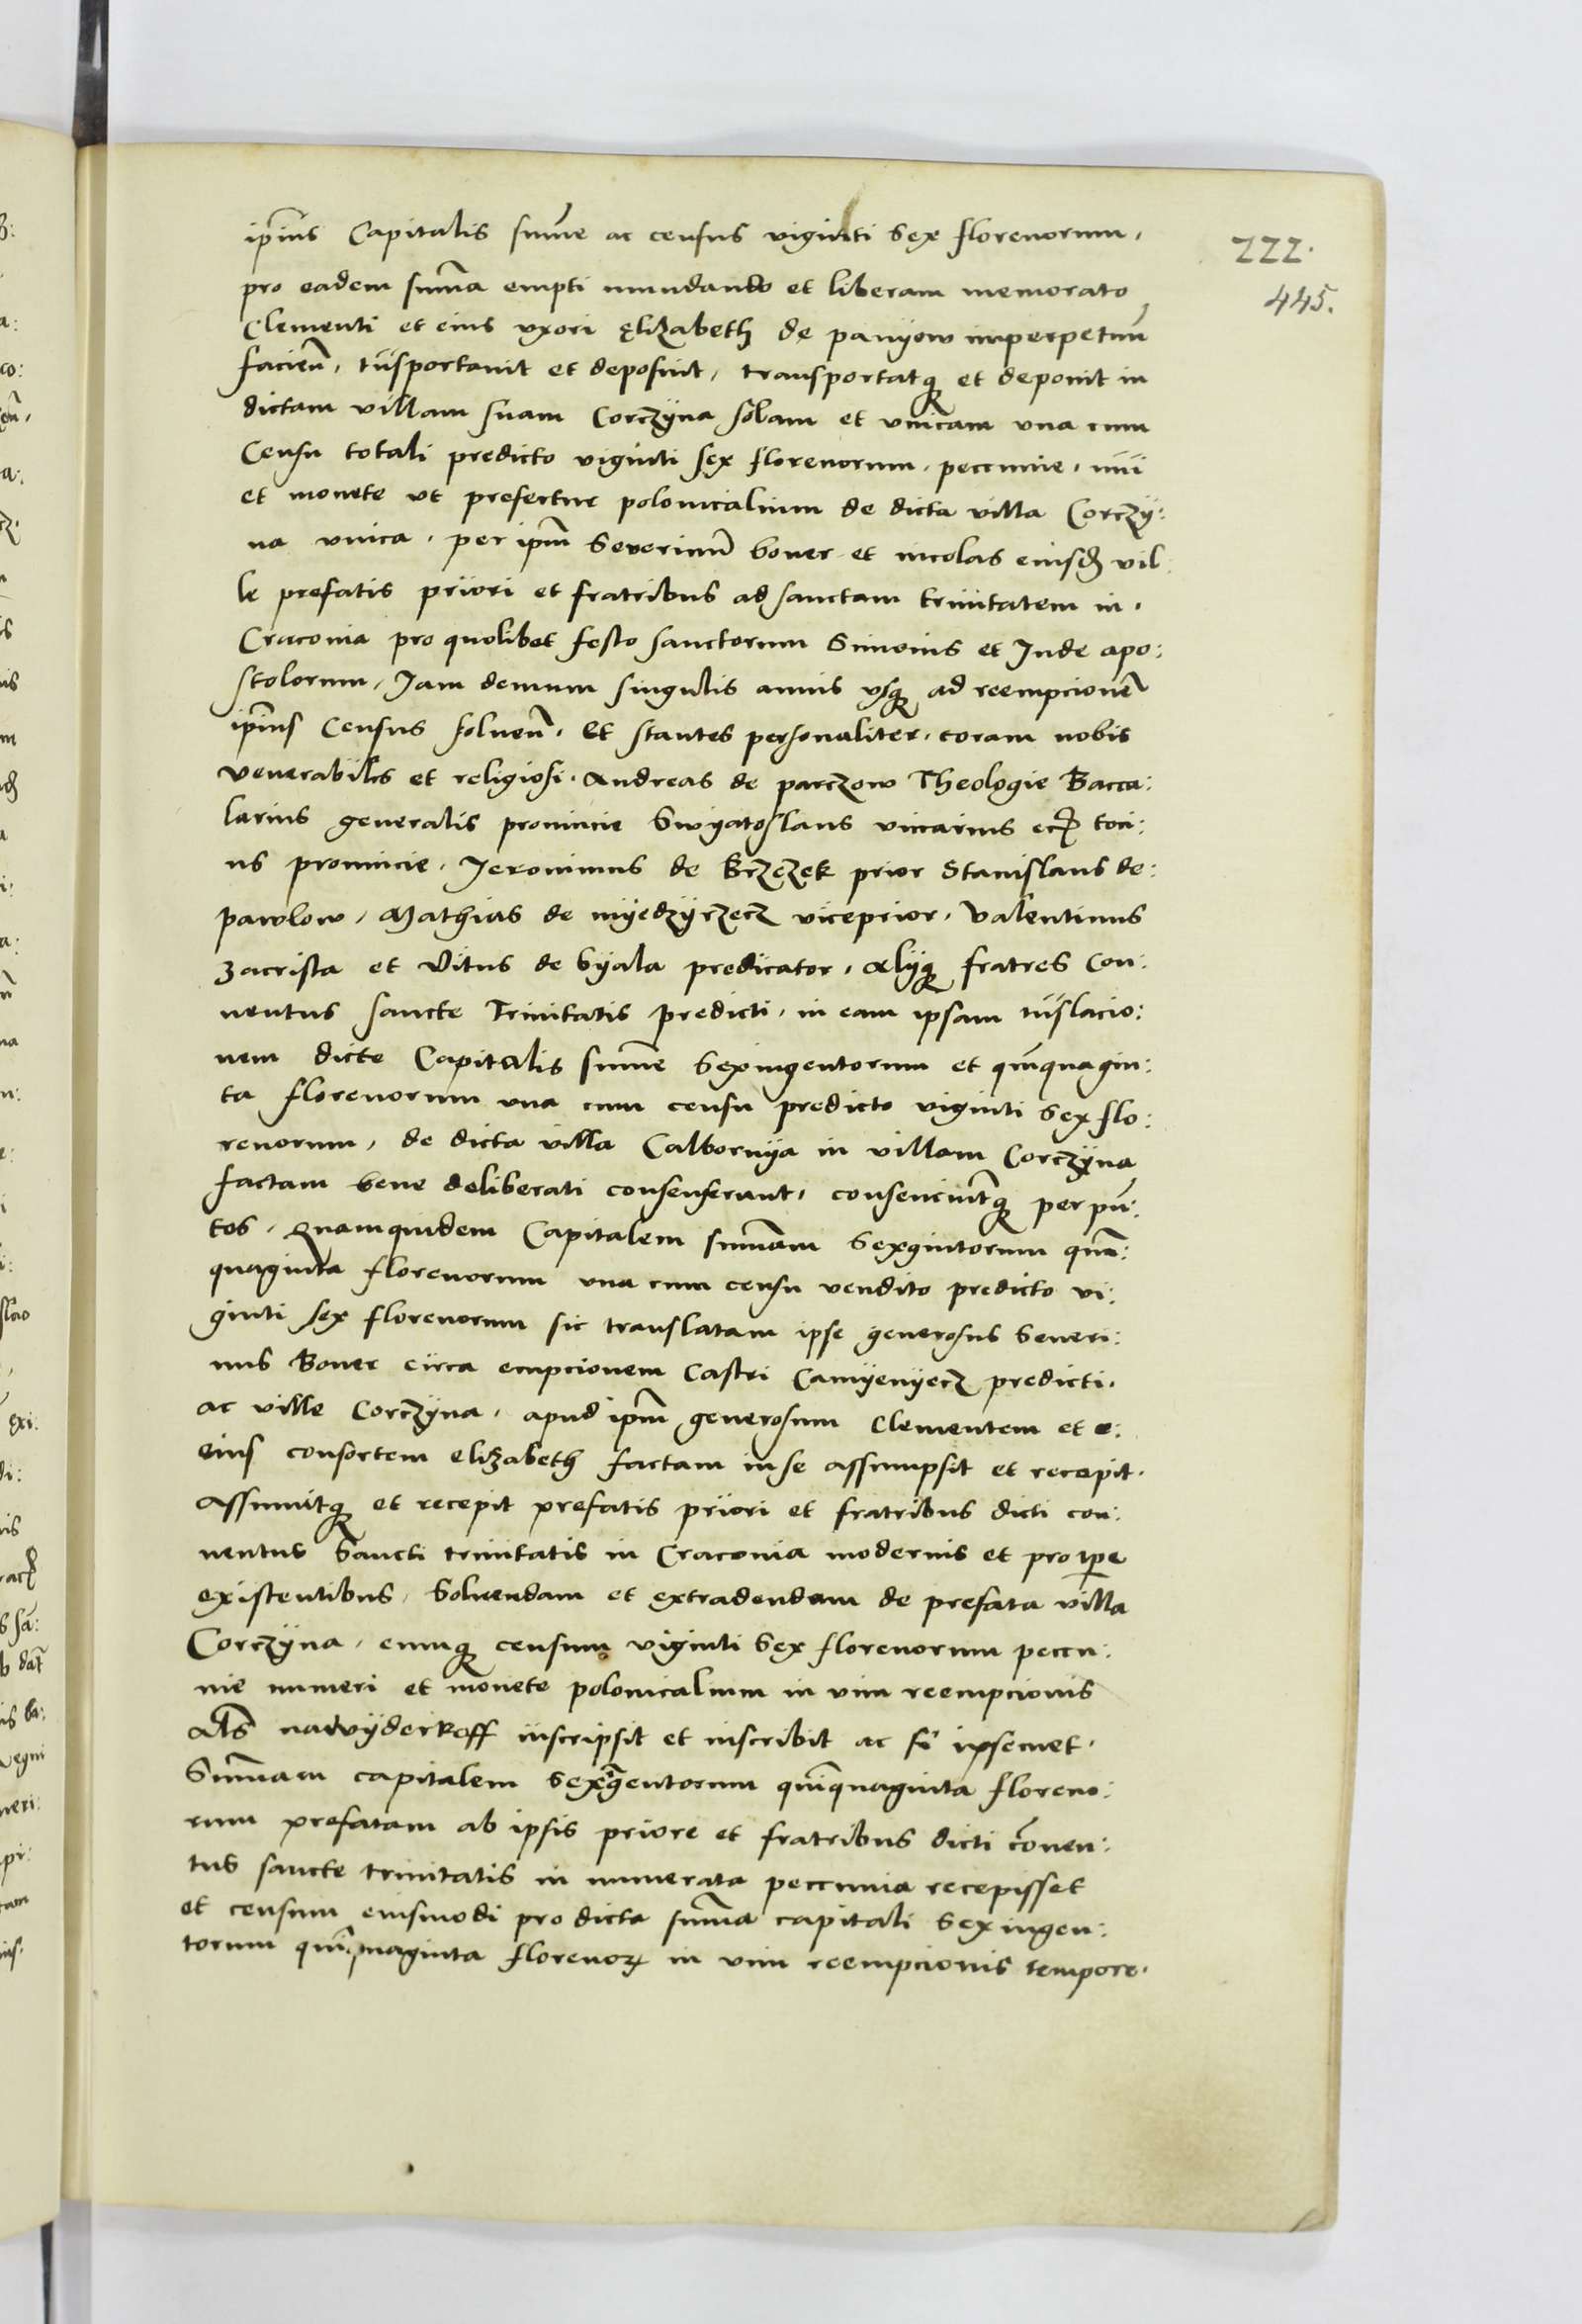 ipīus Capitalis sum̄e ac census viginti Sex florenorum,
222.
pro eadem sum̄a empti mundando et liberam memorato
445.
Clementi et eius vxori ęlizabeth de panyow imperpetuū
facień, trāsportauit et deposuit, transportatq₃ et deponit in
dictam villam suam Corczÿna solam et vnicam vna cum
Censu totali predicto viginti sex florenorum, peccunie, nūi
et monete vt prefertur polonicalium de dicta villa Corczÿ:
na vnica, per ipm̄ Seuerinū boner et incolas eiusdꝫ vil
le prefatis priori et fratribus ad sanctam trinitatem in,
Craconia pro quolibet festo sanctorum Simonis et Jude apo:
stolorum, Jam demum singulis annis vsq₃ ad reempcionē
ipīus Census soluen̄. Et stantes personaliter, coram nobis
venerabiles et religiosi. Andreas de parczow Theologie Bacca:
larius generalis prouincie Swÿatoslaus vicarius ecꝫ toci:
us prouincie, Jeronimus de Brzęzek prior Stanislaus de:
pawlow, Mathias de mÿedzÿrzecz viceprior, Valentinus
zacrista et Vitus de bÿala predicator, Alÿq₃ fratres Con:
uentus sancte Trinitatis predicti, in eam ipsam trāslacio:
nem dicte Capitalis sum̄e Sexingentorum et quīquagin:
ta florenorum vna cum censu predicto viginti Sex flo:
renorum, de dicta villa Calbornÿa in villam Corczÿna
factam bene deliberati consenserunt, consenciuntq₃ per pn̄:
tes, Quamquidem Capitalem sum̄am Sexgintorum quin̄:
quaginta florenorum vna cum censu vendito predicto vi:
ginti sex florenorum sic translatam ipse generosus Seueri:
nus Boner circa empcionem Castri Camÿenÿecz predicti,
ac ville Corczÿna, apud ipm̄ generosum Clementem et e:
eius consortem elizabeth factam in se assumpsit et recepit.
Assumitq₃ et recepit prefatis priori et fratribus dicti con:
uentus Sancti trinitatis in Craconia modernis et pro tp̄e
existentibus, Soluendam et extradendam de prefata villa
Corczÿna, eumq₃ censum viginti Sex florenorum peccu:
nie numeri et monete polonicalium in vim reempcionis
Als̄ nawÿderkoff inscripsit et inscribit ac si ipsemet.
Sum̄am capitalem sexgentorum quīquaginta floreno:
rum prefatam ab ipsis priore et fratribus dicti cōuen:
tus sancte trinitatis in numerata peccunia recepisset
et censum eiusmodi pro dicta sum̄a capitali Sexingen:
torum quīquaginta florenoꝝ in vim reempcionis tempore.